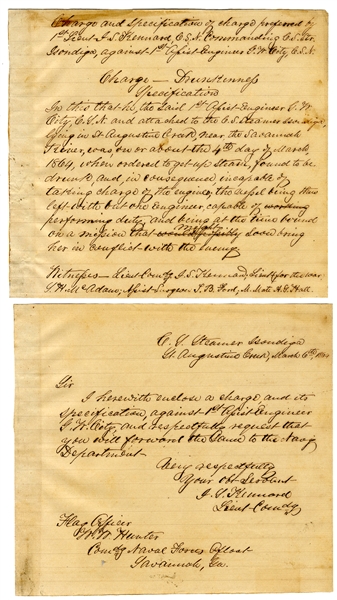 Charge and Specification of charge preferred by
1st Lieut J. S. Kennard, C.S.N. Commanding C.S. Str.
Isondiga, against 1st Asst Engineer G. W. City, C.S.N.
Charge — Drunkenness
Specification
In this that he, the said 1st Asst Engineer G. W.
City, C.S.N. and attached to the C.S. Steamer Isondiga,
lying in St Augustine Creek, near the Savannah
River, was on or about the 4th day of March,
1864, when ordered to get up steam, found to be
drunk, and, in consequence incapable of
taking charge of the engine, the vessel being thus
left with but one engineer capable of working
performing duty, and being at the time bound
on a mission that would possibly soon bring
her in conflict with the enemy.
Witnesses — Lieut Comdg J. S. Kennard; Lieut for the war
Adams; Asst Surgeon T. B. Ford, M. Mate A. G. Hall.
C. S. Steamer Isondiga
St. Augustine Creek, March 6th, 1864
Sir
I herewith enclose a charge, and its
specification, against 1st Asst Engineer
G. W. City, and respectfully request that
you will forward the same to the Navy
Department
Very respectfully
Your obt Servant
J. S. Kennard
Lieut Comdg
Flag Officer
W. W. Hunter
Comdg Naval Forces Afloat
Savannah, Ga.